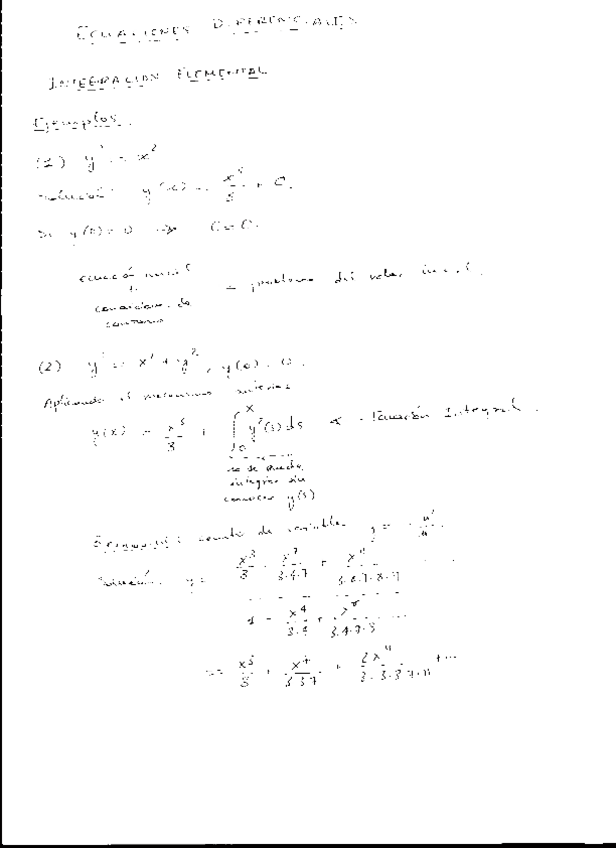 ECUACIONES DIFERENCIALES
INTEGRACION ELEMENTAL
Ejemplos.
(1) y' = x²
Solución: y(x) = x³/3 + C.
Si y(0) = 0 => C = 0.
ecuación
+
condiciones de
contorno
= problema del valor inicial.
(2) y' = x² + y², y(0) = 0.
Aplicando el mecanismo anterior
y(x) = x³/3 + ∫₀ˣ y²(s) ds ← Ecuación Integral.
no se puede
integrar sin
conocer y(s)
cambio de variable y = - u'/u.
Solución: y = x³/3 - x⁷/3·4·7 + x¹¹/3·4·7·8·11 ...
1 - x⁴/3·4 + x⁸/3·4·7·8 ...
= x³/3 + x⁷/3·3·7 + 2x¹¹/3·3·3·7·11 + ...